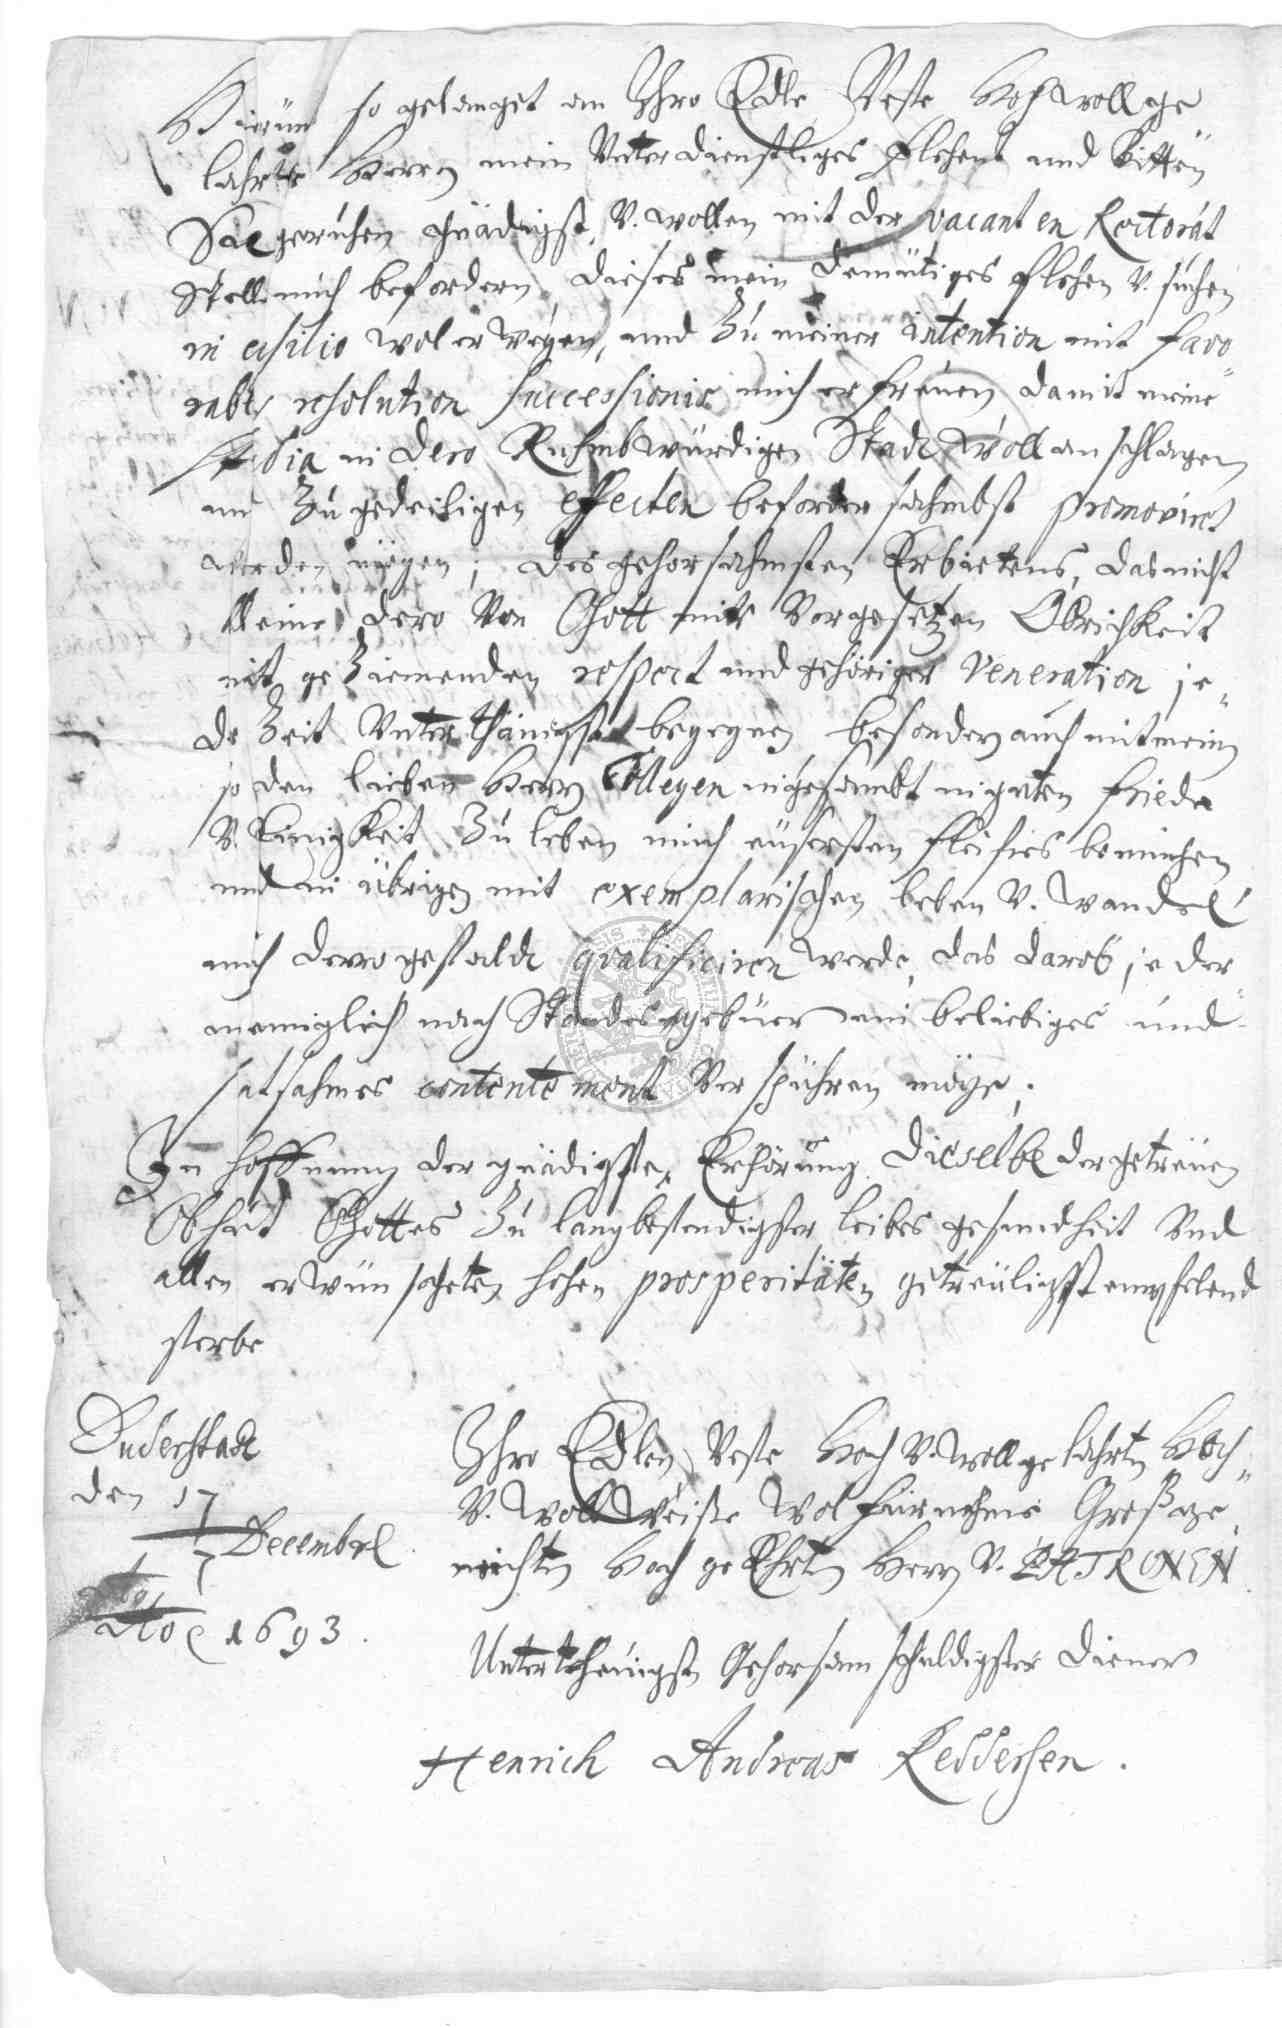 Hierum so gelanget an Ihro Edle Veste Hochwollge
lahrte Herrn mein Unterdienstliges flehent und bitten
Sie geruhen gnädigst V. wollen mit der vacanten Rectorat
Stelle mich befordern dieses mein demütiges flehen V. suchen
in wol erwegen, und Zu meiner intention mit favo
rabler resolution successionis mich erfreuen damit meine
studia in dero Ruhmbwürdigen Stadt woll anschlagen
und Zu gedeiligen effecten befordersahmbst promoviret
werden mögen; des gehorsahmsten Erbietens, das nicht
alleine dero Von Gott mir Vorgesetzen Obrichkeit
mit geZiemenden respect und gehöriger Veneration je„
de Zeit Unterthänigst begegnen besondern auch mit meinen
so den lieben Herrn Collegen ingesambt in guten friede
V. Einigkeit Zu leben mich eusersten fleises bemühen
und im übrigen mit exemplarischen leben V. wandel
mich derogestaldt qvalificiren werde, das darob jeder
manniglich nach Standesgebüer ein beliebiges und
satsahmes contentement Verspühren möge.
In hoffnung der gnädigsten Erhörung Dieselbe der getreuen
Obhut Gottes Zu langbestendigster leibes gesundheit Und
allen erwünscheten hohen prosperitäten getreuligst empfelend
sterbe
Duderstadt
den 17
7 Decembr
Ao 1693.
Ihro Edlen Veste Hoch V. wollgelahrten Hoch„
V. Woll Weise Wolfürnehme Großge„
neichten Hoch geEhrten Herrn V. PATRONEN
Unterthenigst Gehorsam schuldigster Diener
Henrich Andreas Reddersen.